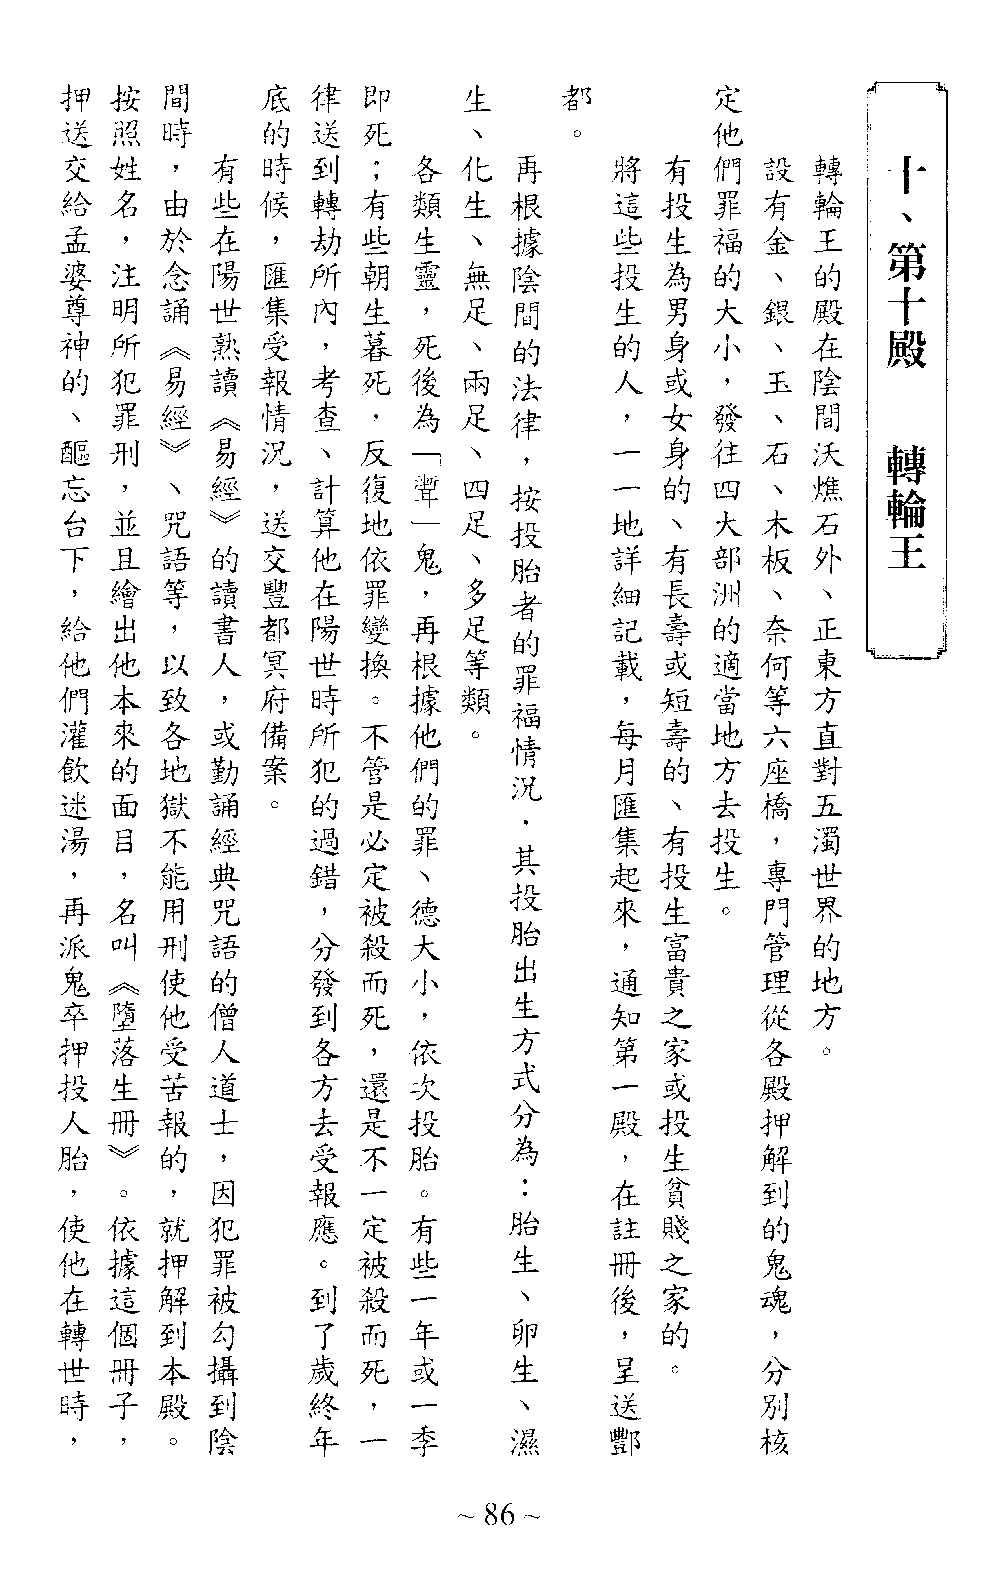 十、第十殿　轉輪王
轉輪王的殿在陰間沃燋石外、正東方直對五濁世界的地方。
設有金、銀、玉、石、木板、奈何等六座橋，專門管理從各殿押解到的鬼魂，分別核
定他們罪福的大小，發往四大部洲的適當地方去投生。
有投生為男身或女身的、有長壽或短壽的、有投生富貴之家或投生貧賤之家的。
將這些投生的人，一一地詳細記載，每月匯集起來，通知第一殿，在註冊後，呈送酆
都。
再根據陰間的法律，按投胎者的罪福情況．其投胎出生方式分為：胎生、卵生、濕
生、化生、無足、兩足、四足、多足等類。
各類生靈，死後為「聻」鬼，再根據他們的罪、德大小，依次投胎。有些一年或一季
即死；有些朝生暮死，反復地依罪變換。不管是必定被殺而死，還是不一定被殺而死，一
律送到轉劫所內，考查、計算他在陽世時所犯的過錯，分發到各方去受報應。到了歲終年
底的時候，匯集受報情況，送交豐都冥府備案。
有些在陽世熟讀《易經》的讀書人，或勤誦經典咒語的僧人道士，因犯罪被勾攝到陰
間時，由於念誦《易經》、咒語等，以致各地獄不能用刑使他受苦報的，就押解到本殿。
按照姓名，注明所犯罪刑，並且繪出他本來的面目，名叫《墮落生冊》。依據這個冊子，
押送交給孟婆尊神的、醧忘台下，給他們灌飲迷湯，再派鬼卒押投人胎，使他在轉世時，
~ 86 ~